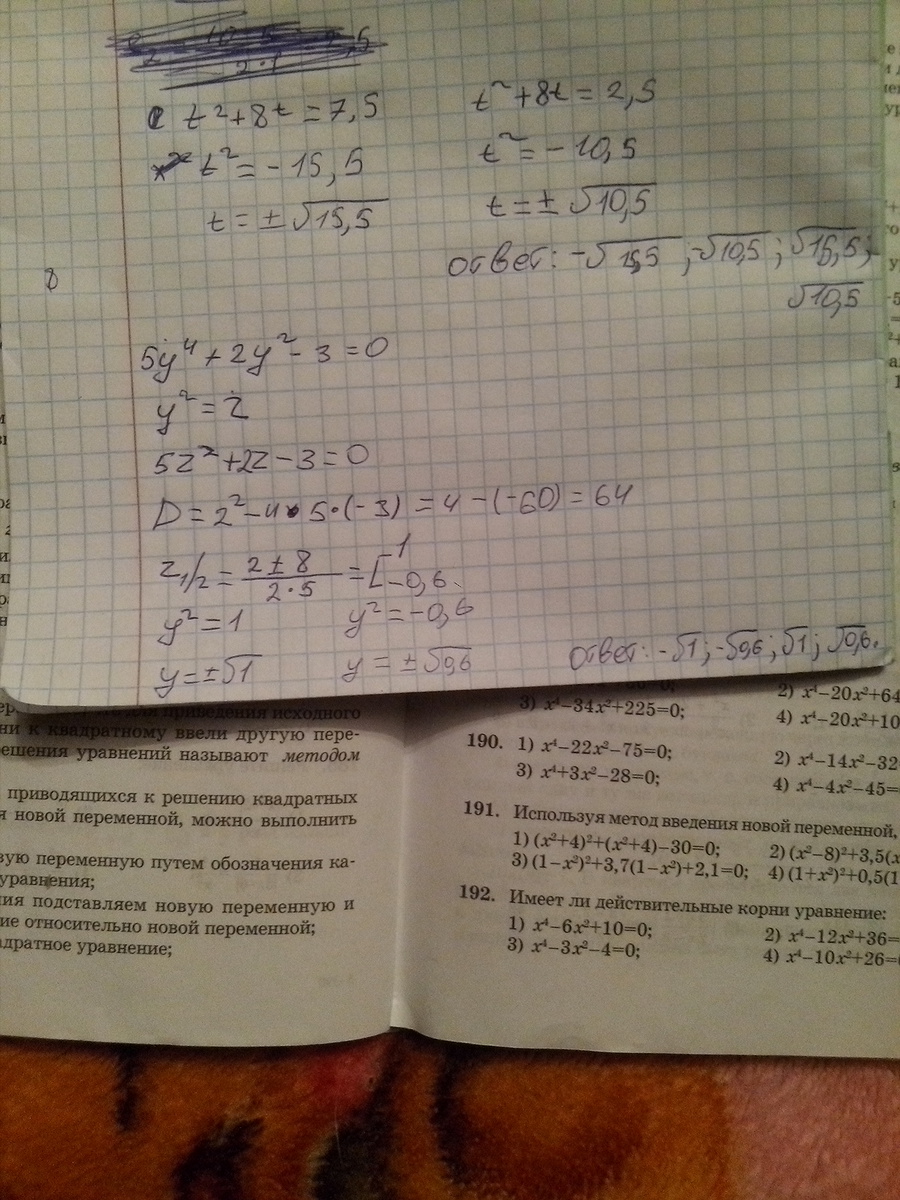 t²+8t=7,5
t²=-15,5
t=±√15,5
t²+8t=2,5
t²=-10,5
t=±√10,5
ответ: -√15,5; -√10,5; √15,5;
√10,5
8
5y⁴+2y²-3=0
y²=z
5z²+2z-3=0
D=2²-4·5·(-3)=4-(-60)=64
z1/2=2±8/2·5=[1 -0,6
y²=1
y²=-0,6
y=±√1
y=±√0,6
ответ: -√1; -√0,6; √1; √0,6.
для приведения исходного
ни к квадратному ввели другую пере-
решения уравнений называют методом
приводящихся к решению квадратных
я новой переменной, можно выполнить
вую переменную путем обозначения ка-
уравнения;
ния подставляем новую переменную и
ние относительно новой переменной;
адратное уравнение;
2) x⁴–20x²+64
3) x⁴–34x²+225=0;
4) x⁴–20x²+10
190. 1) x⁴–22x²–75=0;
2) x⁴–14x²–32
3) x⁴+3x²–28=0;
4) x⁴–4x²–45=
191. Используя метод введения новой переменной,
1) (x²+4)²+(x²+4)–30=0;
2) (x²–8)²+3,5(x
3) (1–x²)²+3,7(1–x²)+2,1=0;
4) (1+x²)²+0,5(1
192. Имеет ли действительные корни уравнение:
1) x⁴–6x²+10=0;
2) x⁴–12x²+36=
3) x⁴–3x²–4=0;
4) x⁴–10x²+26=